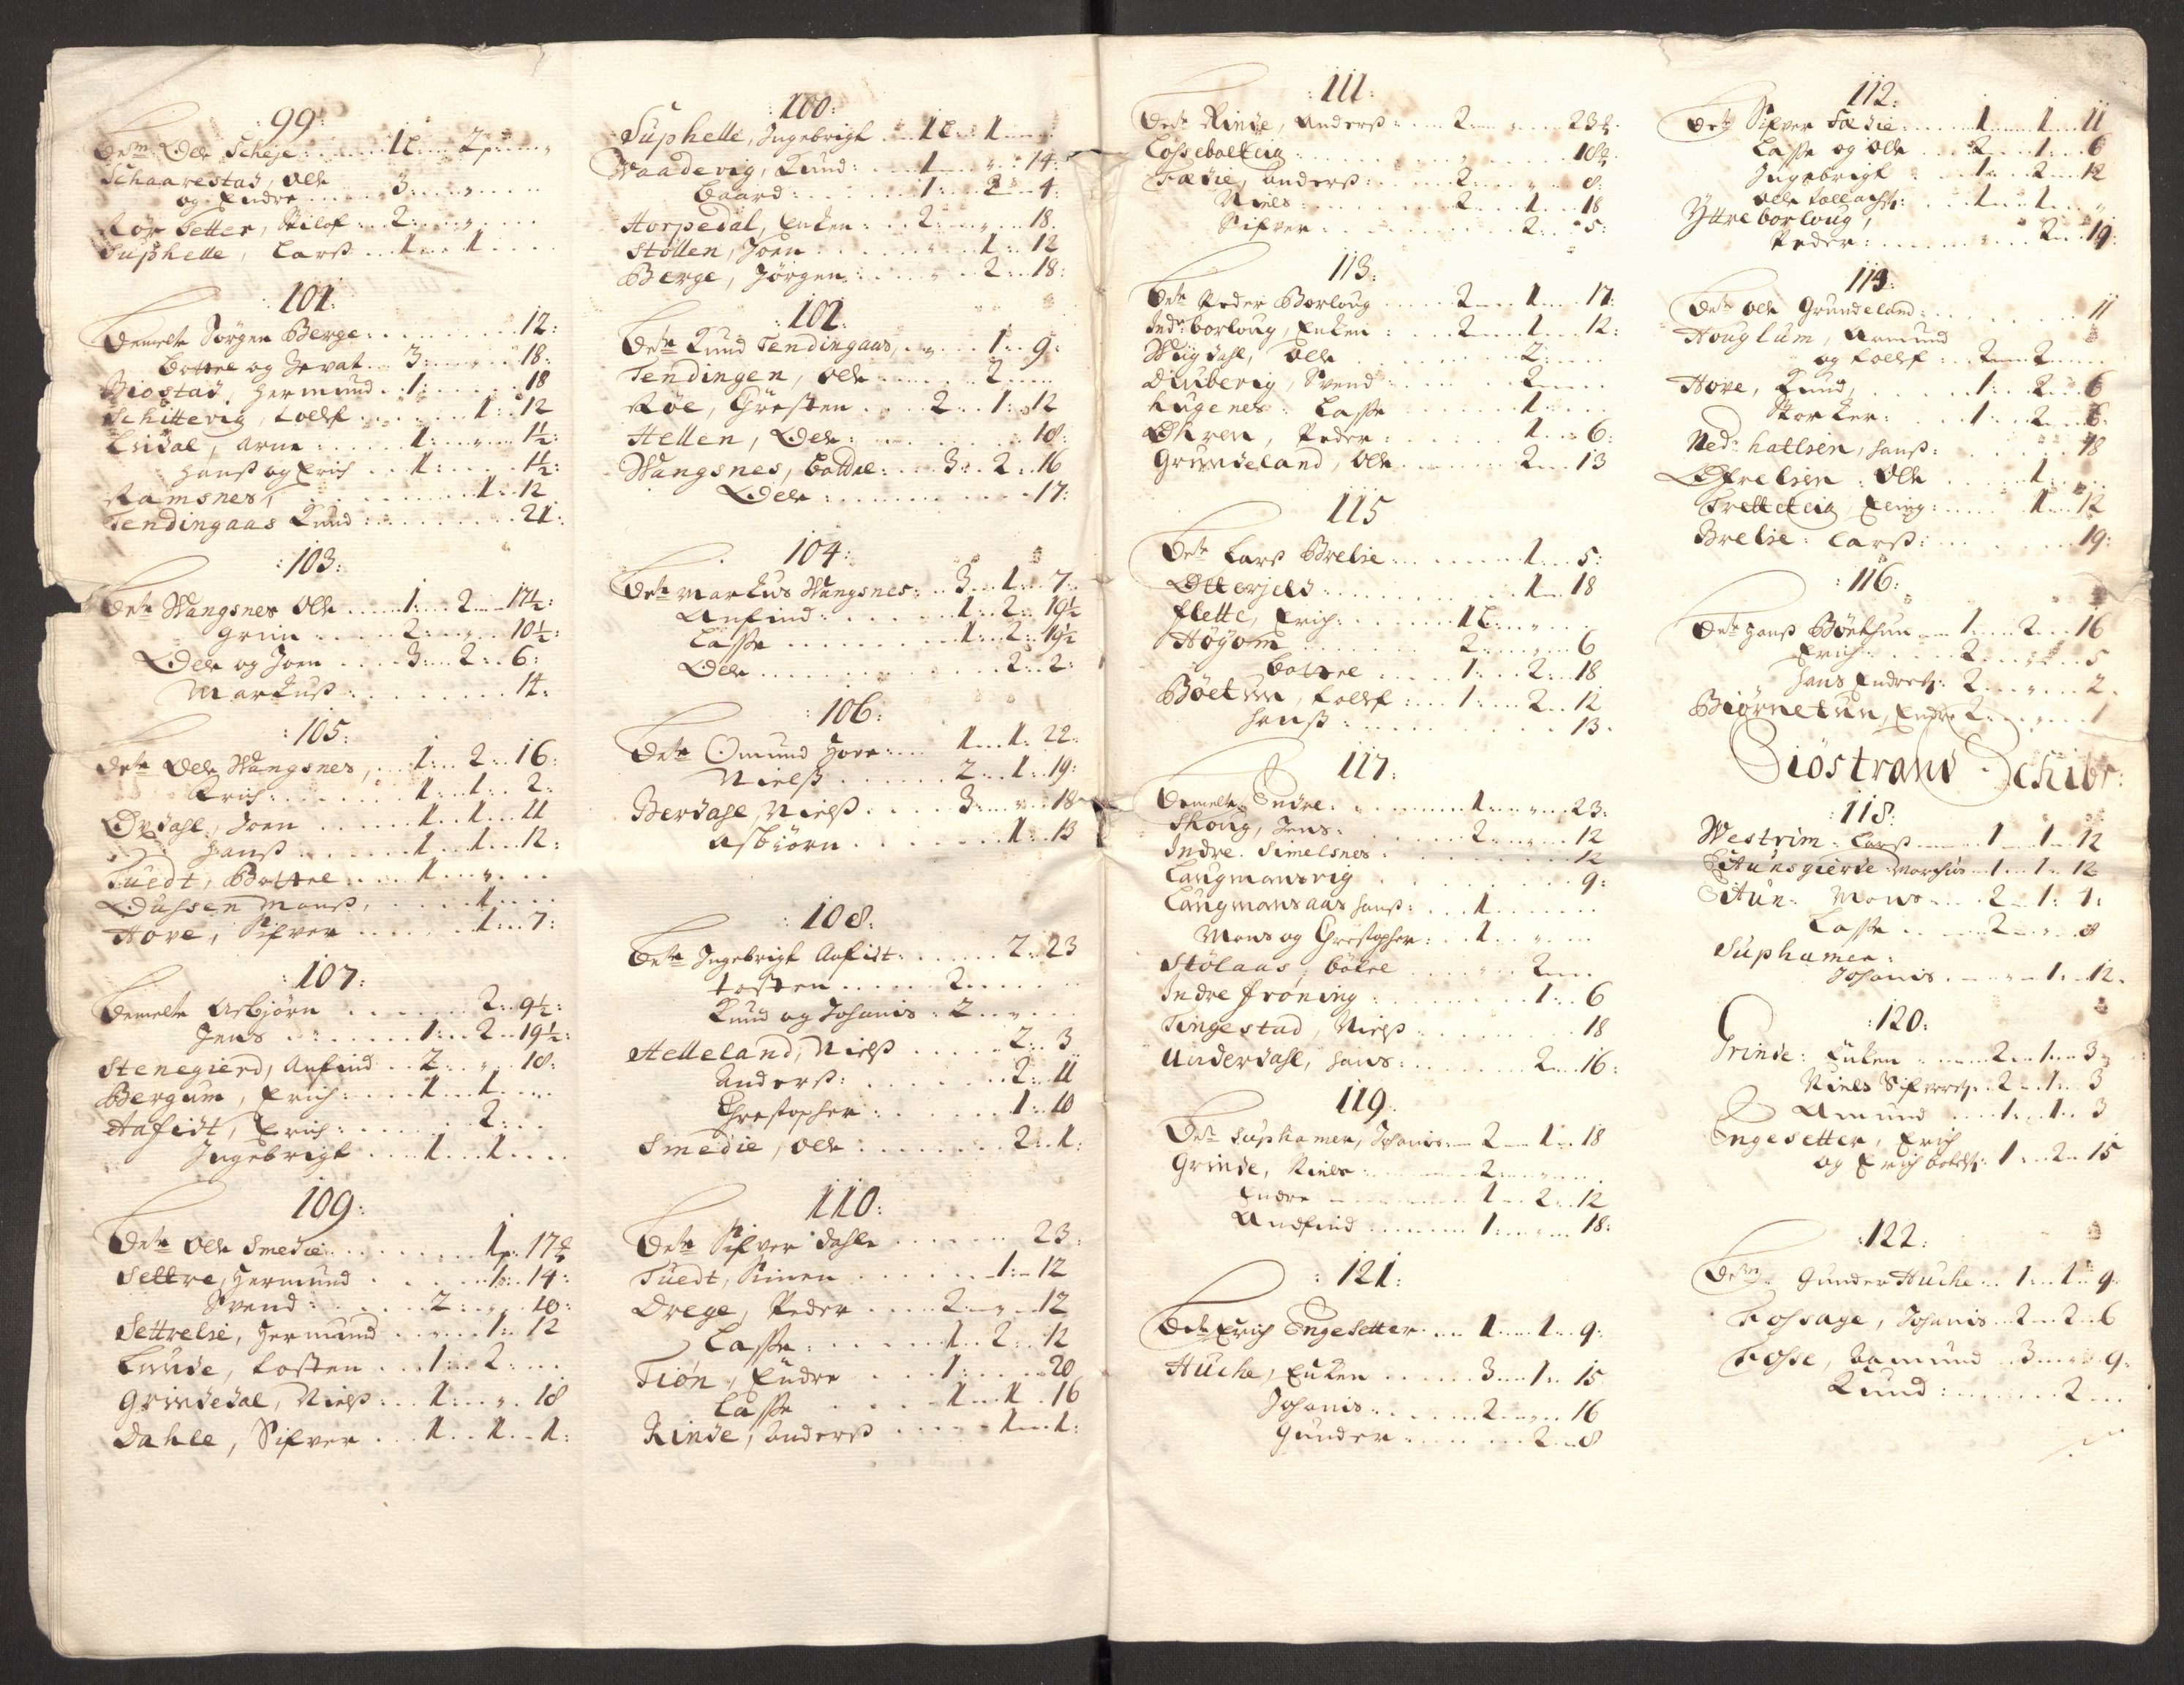 :99:
Bem: Ole Scheje: 1 L 2 p
Schaarestad, Ole
og Endre 3: „
Rør Setter, Stilof: 2: „
Suphelle, Lars 1: 1
:101:
Bemelte Jørgen Berge: 12:
Bottel og Iffvar 3: „ 18:
Biostad, Hermund 1: 18
Schittevig, Rolf 1: 12
Lridal, Arne 1: „ 1½:
Hans og Erich 1: 1½:
Ramsnes, 1: 12
Tendingaas Knud: 21:
:103:
Bete Wangsnes Ole 1: 2 17½:
Grim 2: „ 10½:
Ole og Joen 3: 2: 6:
Markus: 14:
:105:
Bete Ole Wangsnes, 1: 2 16:
Erich: 1: 1: 2:
Ordahl, Joen 1: 1: 11
Hans 1: 1: 12:
Tuedt, Bottel 1: „
Dussen Mons, 1:
Hove, Sifver 1: 7:
:107:
Bemelte Asbjørn 2: 9½:
Jens 1: 2 19½:
Stenegierd, Anfind 2: „ 18:
Bergum, Erich: 1: 1
Hafidt, Erich: 2:
Ingebrigt 1: 1
109:
Bete Ole Smedie: 1 p: 17½
Settre, Hermund 1: 14:
Svend: 2: „ 10:
Settrelie, Hermund „ 1: 12
Lunde, Tosten 1: 2:
Grindedal, Niels: 1: „ 18
Dahle, Sifver 1: 1: 1:
:100:
Suphelle, Ingebrigt 1 L: 1
Waadevig, Knud: 1 „ 14:
Baard: 1: 2 4:
Horpedal, Enken: 2: „ 18.
Støllen, Joen „ 1: 12
Berge, Jørgen: „ 2: 18:
:102:
Bete Knud Tendingaas, „ 1: 9:
Tendingen, Ole 2:
Røe, Chresten 2: 1: 12
Hellen, Ole: 18:
Wangsnes, Bottel: 3: 2: 16
Ole: 17:
104:
Bete Markus Wangsnes: 3: 1: 7:
Anfind: 1: 2: 19½
Lasse 1: 2: 19½
Ole 2: 2:
:106:
Bete Omund Hove: 1: 1: 22:
Niels 2: 1: 19:
Berdahl, Niels 3: „ 18
Asbiörn 1: 13
:108:
Bete Ingebrigt Aafidt: 2: 23
Tosten 2:
Knud og Johanis: 2 „
Helleland, Niels 2: 3
Anders: 2: 11
Chrestopher: 1: 10
Smedie, Ole: 2: 1:
110:
Bete Sifver Dahle 23:
Tuedt, Simen 1: 12
Drege, Peder 2: „ 12
Lasse: 1: 2: 12
Tiøn, Endre 1: 20
Lasse 1: 1: 16
Rinde, Anders 1: 1:
:111:
Bete Rinde, Anders 2: „ 23½:
Lossebolteig „ 10½:
Fædie, Anders: 2: „ 8:
Niels: 2: 1: 18
Sifver 2: 5:
113:
Bete Peder Borloug 2: 1: 17:
Indr: Borloug, Enken 2: 1: 12:
Muydahl, Ole 2:
Diuberig, Svend 2:
Hugenes: Lasse 1:
Ohren, Peder: 1: 6:
Grundeland, Ole 2: 13
115
Bete Lars Brelie 1: 5:
Otterjeld: 1: 18
Flette, Erich: 1 L: „
Høyom 2: „ 6
Bottel 1: 2: 18
Bøetun, Rolf 1: 2: 12
Hans: 13.
117:
Bemelte Endre: 1: „ 23:
Skoug, Jens: 2: „ 12
Indre: Simelsnes: 12
Laugmansvig 9:
Laugmansaas Hans: 1
Mons og Chrestopher: 1: „
Stølaas, Botel 2:
Indre Frøning: 1: 6
Tingestad, Niels 18
Underdahl, Hans: 2: 16:
119.
Bete Suphamer, Johanis 2: 1: 18
Grinde, Niels 2: „
Endre 1: 2: 12
Andfind 1: „ 18:
:121:
Bete Erich Engesetter 1: 1: 9:
Huche, Enken 3: 1: 15
Johanis: 2: „ 16
Gunder 2: 8
112:
Bete Sifver Fædie 1: 1: 11
Lasse og Ole 2: 1: 6
Ingebrigt 1: 2: 12
Ole Tollachs: 1: 1: „
Yttre Borloug,
Peder: 2: 19:
113:
Bete Ole Grundeland: 11
Houglum, Aamund
og Rolf 2: 2
Hove, Knud 1: 2: 6
Storker: 1: 2: 6:
Ned: Hatlsen, Hans: 18
Ofrelien: Ole 1:
Tretteteig, Elling: 1: 12
Brelie: Lars: 19:
:116:
Bete Hans Bøetun 1: 2: 16
Erich 2: „ 5
Hans Endres: 2: „ 2.
Biørnetun, Endre 2: „ 1
Siöstrand Schibr:
:118:
Westrim: Lars 1: 1: 12
Stunsgierde Marchus 1: 1: 12
Stun: Mons 2: 1: 1:
Lasse 2: „ 8
Suphamer:
Johanis 1: 12.
:120:
Grinde: Enken 2: 1: 3
Niels Sifvers: 2: 1: 3
Amund 1: 1: 3
Engesetter, Erich
og Erich Botels: 1: 2: 15
:122:
Bete Gunder Huche 1: 1: 9:
Fossage, Johanis 2: 2: 6
Fosse, Aamund 3: „ 9:
Knud: 2: